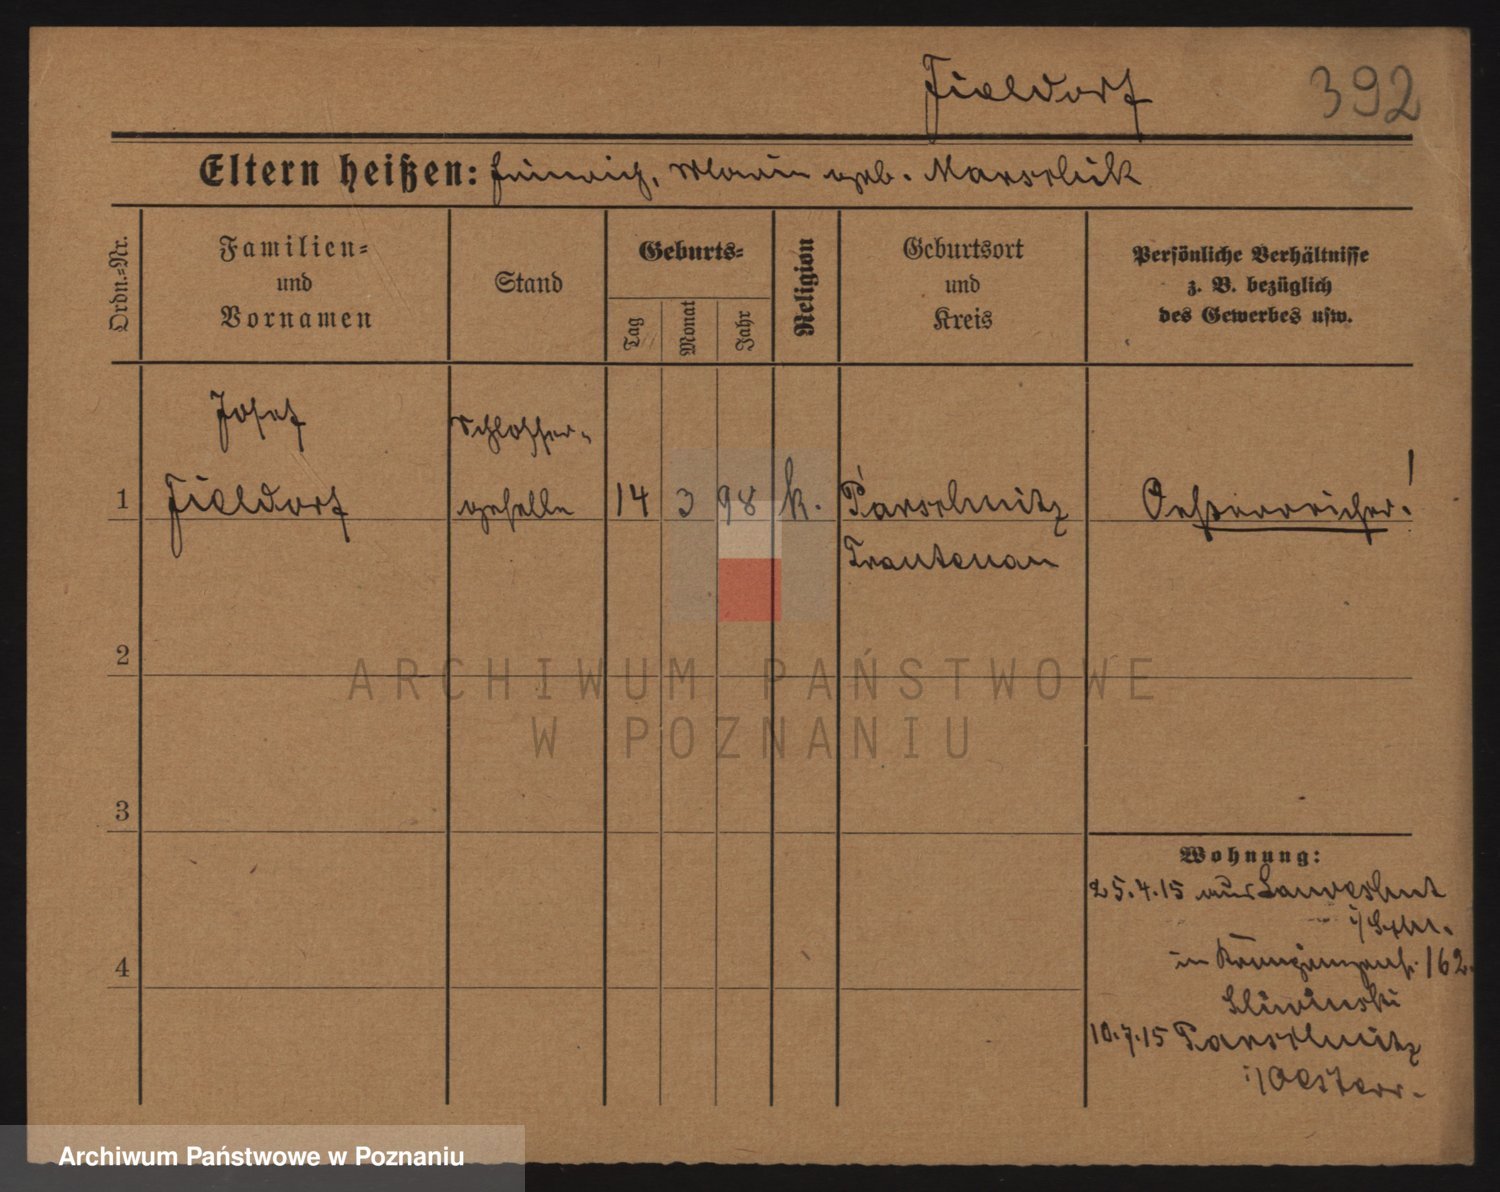 Fieldorf 392
Eltern heißen: Heinrich, Marie geb. Marschik
Ordn.=Nr.
Familien=
und
Vornamen
Stand
Geburts=
Tag
Monat
Jahr
Religion
Geburtsort
und
Kreis
Persönliche Verhältnisse
z. B. bezüglich
des Gewerbes usw.
Josef Schlosser-
1 Fieldorf geselle 14 3 98 k. Parschnitz Oesterreicher!
Trautenau
2
3
4
Wohnung:
25.4.15 aus Landeshut
i/Schl.
in 162.
Sliwinski
10.7.15 Parschnitz
i/Oesterr.
ARCHIWUM PAŃSTWOWE
W POZNANIU
Archiwum Państwowe w Poznaniu